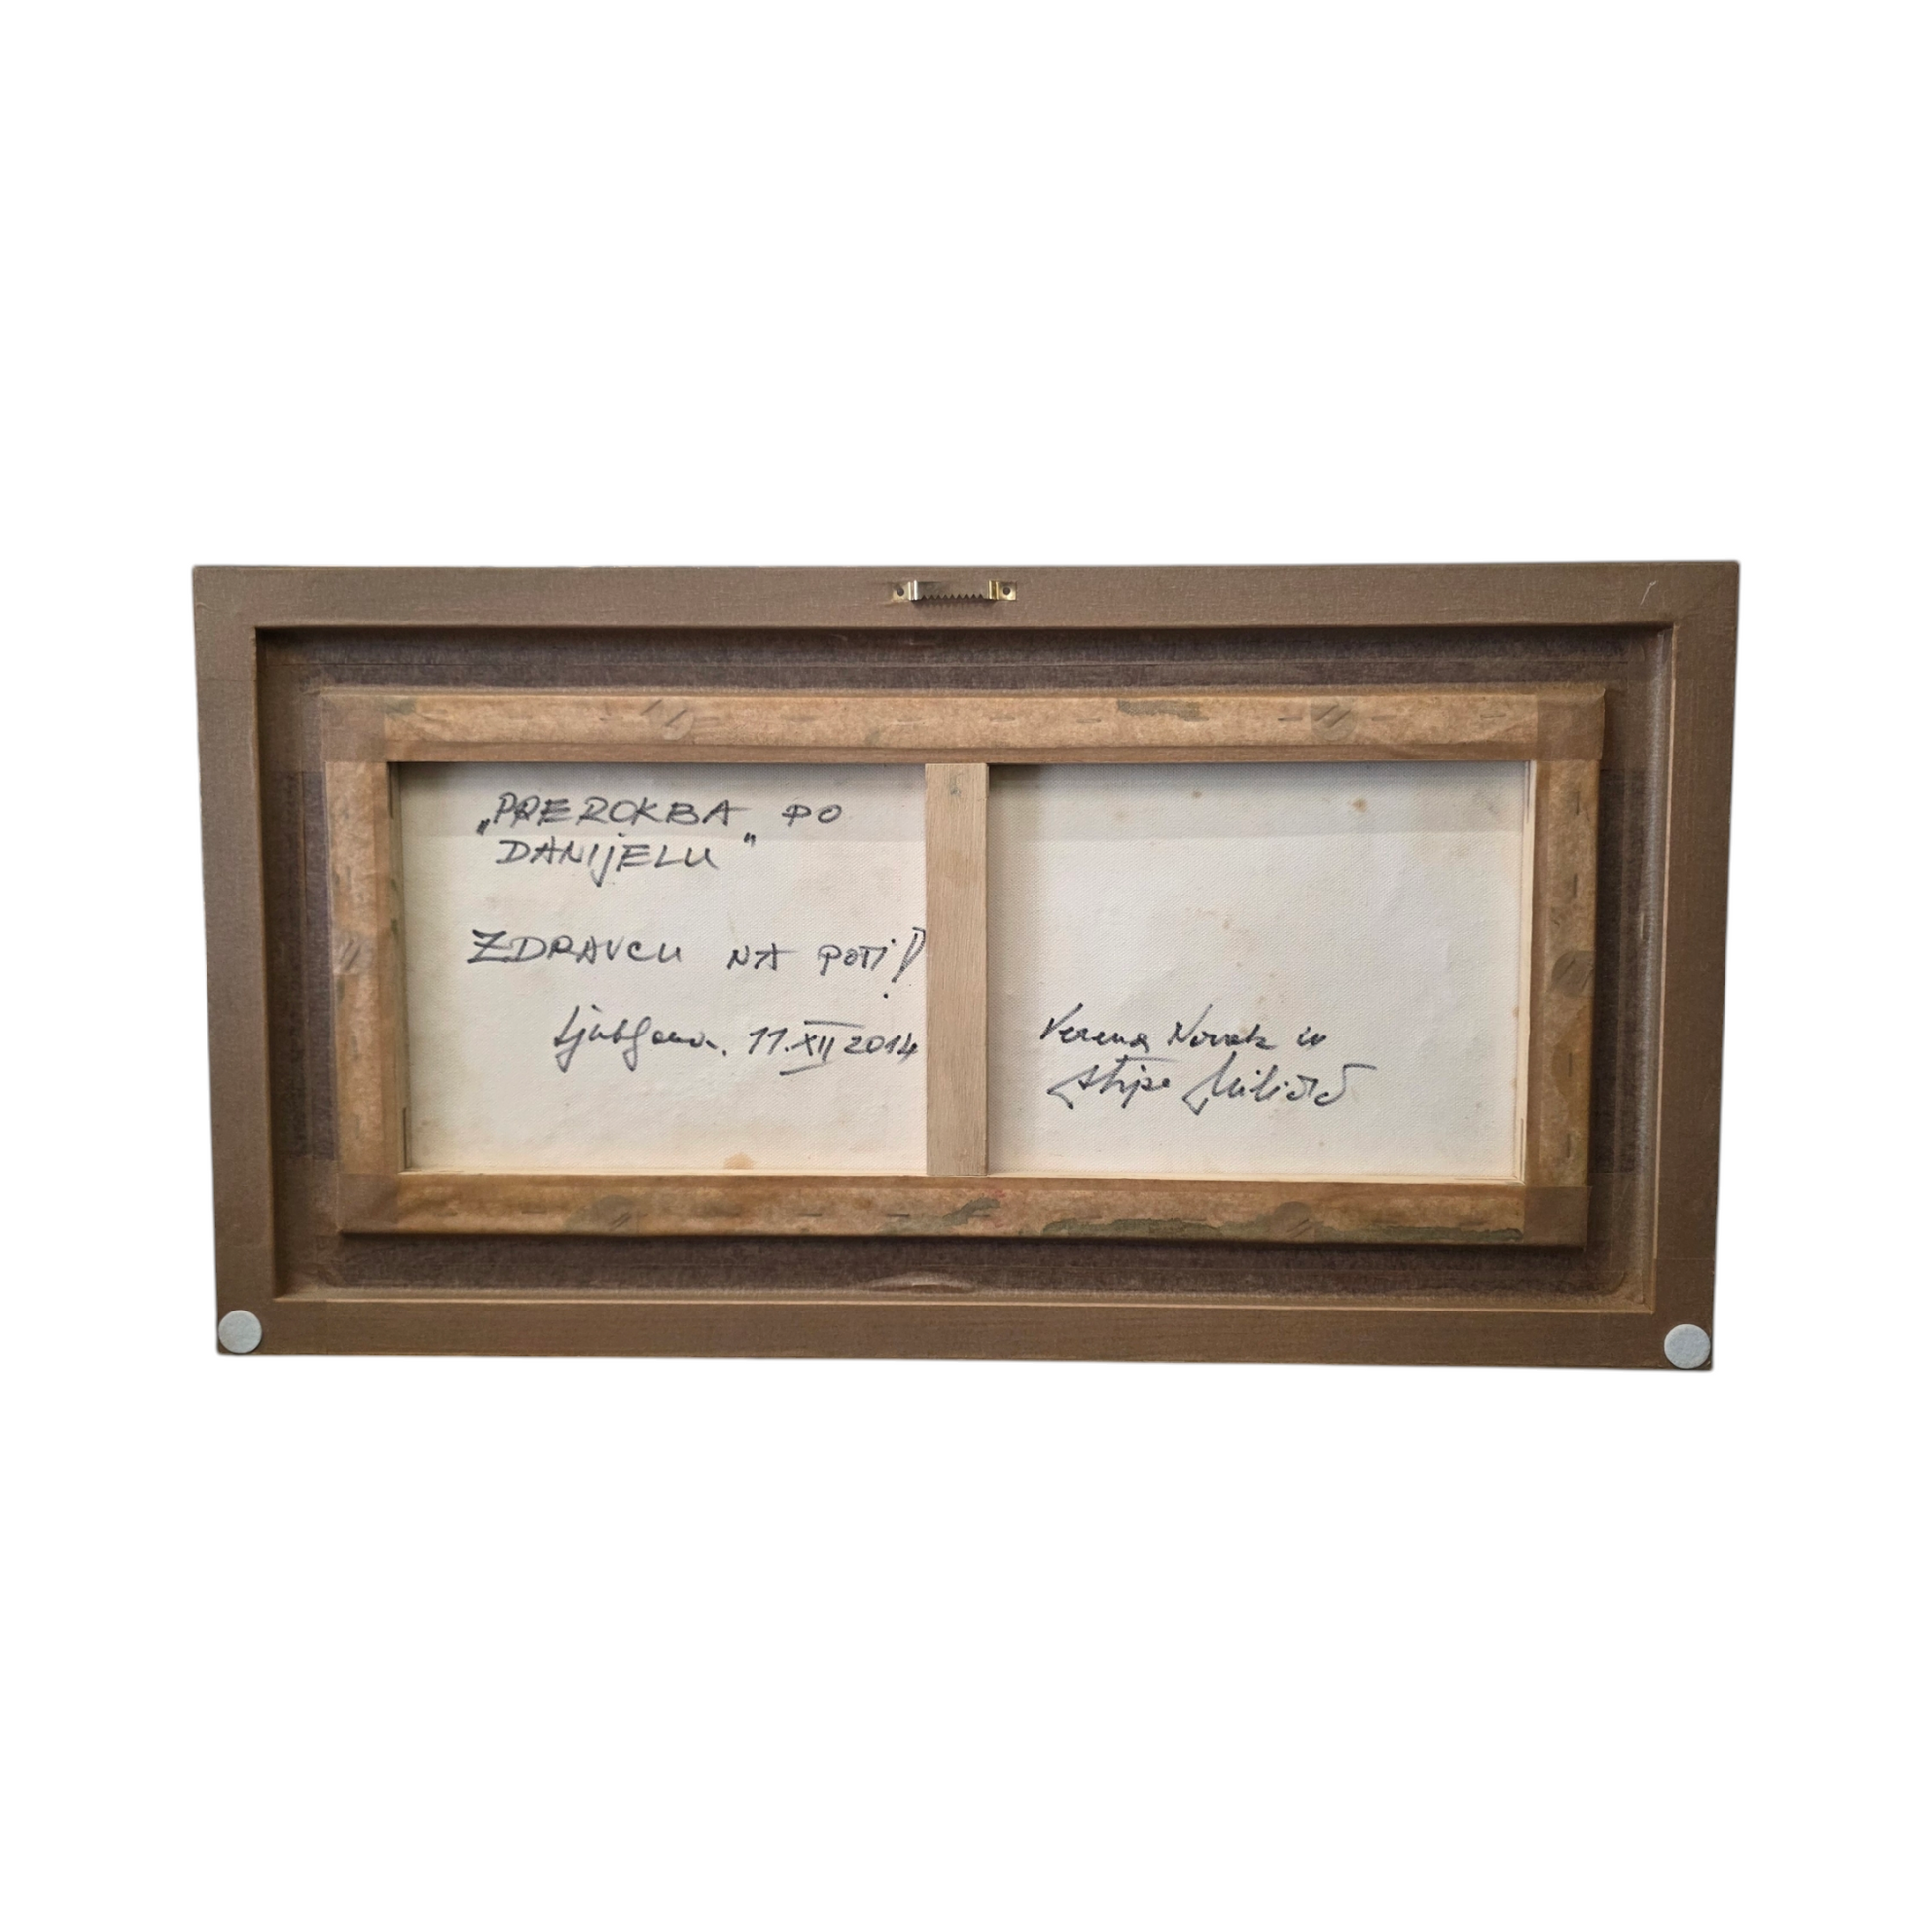 „PREROKBA PO
DANIJELU"
ZDRAVCU NA POTI!
Ljubljana, 11. XII 2014
Verena Novak in
Stipe